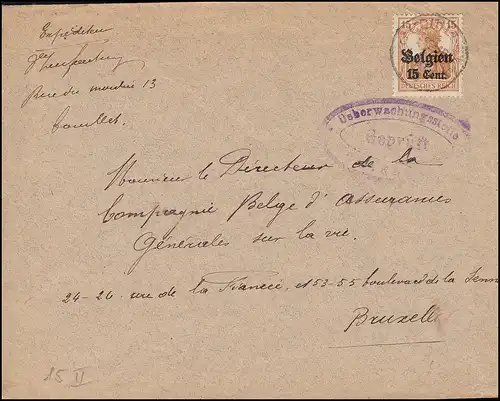 Expéditeur
Rue du moulin 13
Couillet.
15 15
Belgien
15 Cent.
DEUTSCHES REICH
Ueberwachungsstelle
Geprüft
Monsieur le Directeur de la
Compagnie Belge d'Assurances
Générales sur la vie.
24-26 rue de la Fiancée, et 53-55 boulevard de la Senne
Bruxelles
15 II